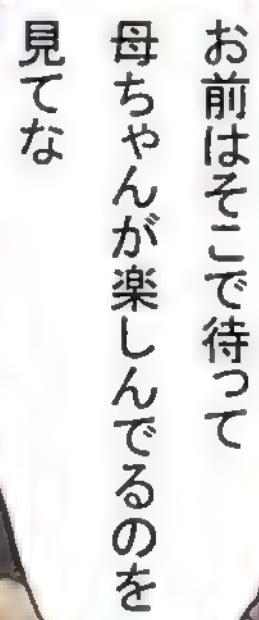 お前はそこで待って
母ちゃんが楽しんでるのを
見てな